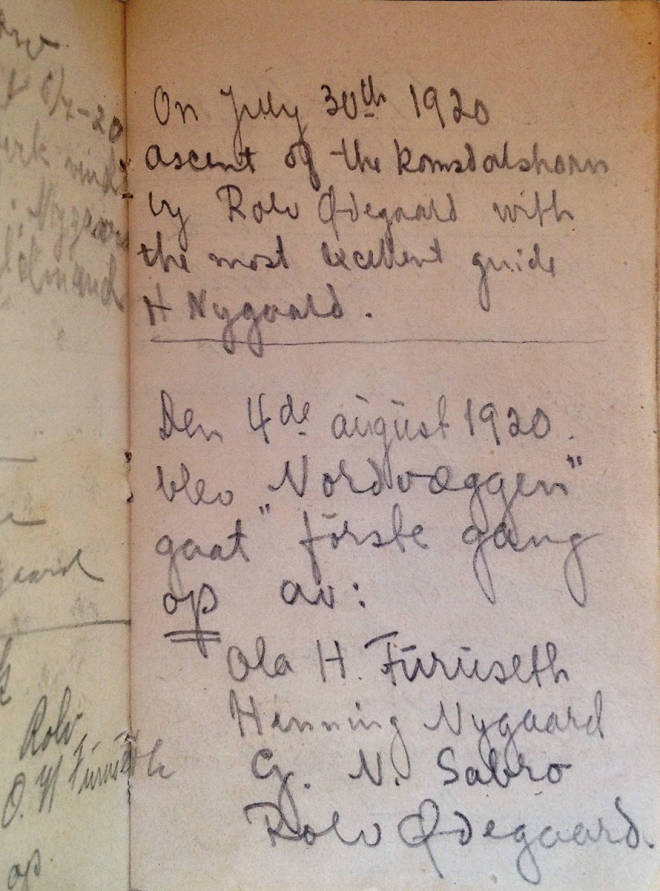 6/7-20
Rolv
op.
On July 30th 1920
ascent of the Romsdalshorn
by Rolv Ødegaard with
the most excellent guide
H Nygaard.
Den 4de august 1920.
blev „Nordvæggen"
gaat første gang
op av:
Ola H. Furuseth
Henning Nygaard
G. N. Sabro
Rolv Ødegaard.